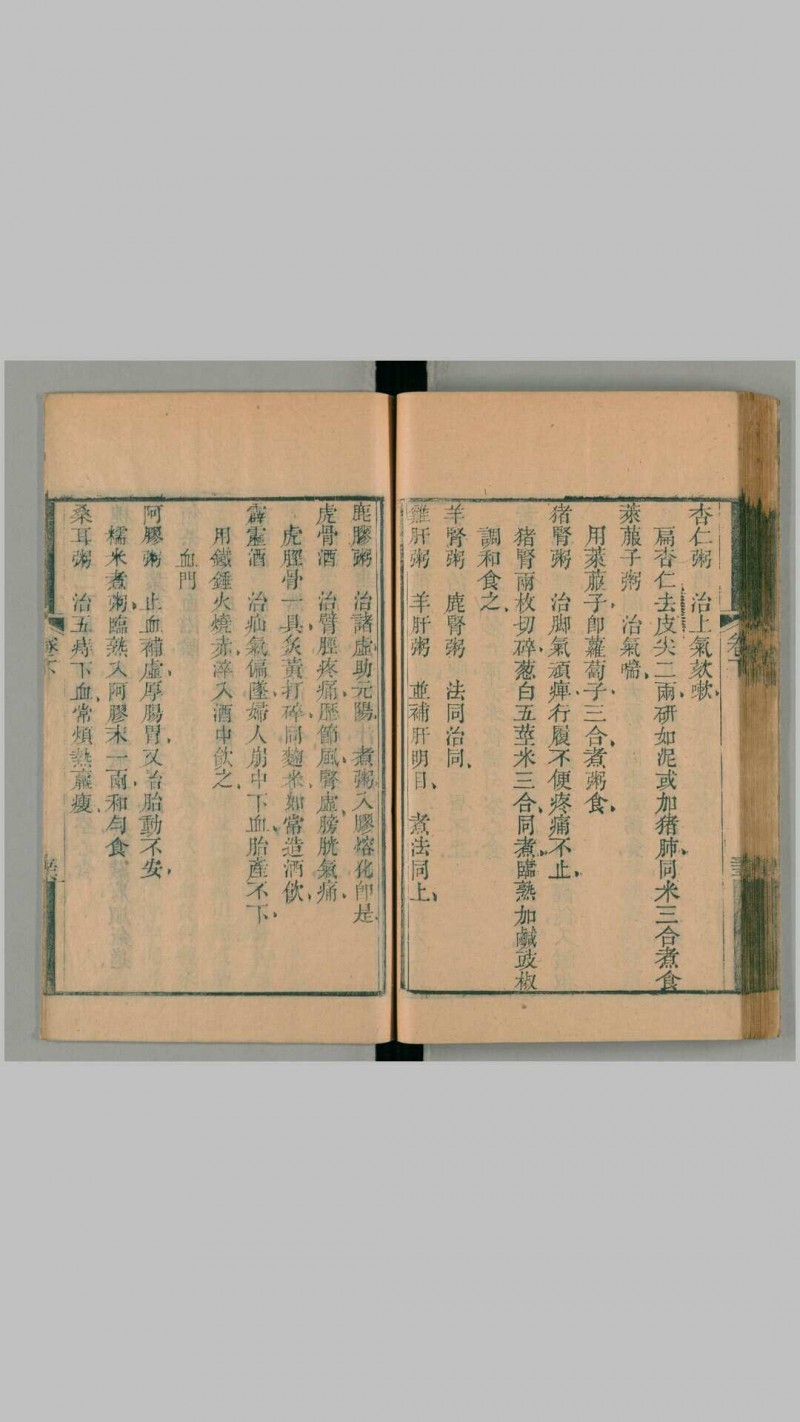 杏仁粥　治上氣欬嗽、
扁杏仁去皮尖二兩研如泥或加猪肺、同米三合煮食
萊菔子粥　治氣喘、
用萊菔子、卽蘿蔔子三合、煮粥食、
猪腎粥　治脚氣頑痺、行履不便、疼痛不止、
猪腎兩枚切碎、葱白五莖、米三合、同煮、臨熟加鹹豉椒
調和食之、
羊腎粥　鹿腎粥　法同治同、
雞肝粥　羊肝粥　並補肝明目、　煮法同上、
卷下
鹿膠粥　治諸虛、助元陽、　煮粥入膠熔化卽是、
虎骨酒　治臂脛疼痛、歷節風、腎虛、膀胱氣痛、
虎脛骨一具炙黃打碎、同麯米如常造酒飲、
霹靂酒　治疝氣偏墜、婦人崩中下血、胎產不下、
用鐵錘火燒赤、淬入酒中飲之、
血門
阿膠粥　止血補虛、厚腸胃、又治胎動不安、
糯米煮粥、臨熟入阿膠末一兩、和勻食
桑耳粥　治五痔下血、常煩熱羸瘦、
卷下